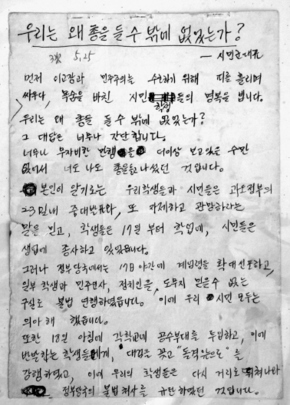 우리는 왜 총을 들 수 밖에 없었는가?
5.25 — 시민군 대표
먼저 이 고장과 민주주의를 수호하기 위해 피를 흘리며
싸우다 목숨을 바친 시민 학생들의 명복을 빕니다.
우리는 왜 총을 들 수 밖에 없었는가?
그 대답은 너무나 간단합니다.
너무나 무자비한 만행을 더 이상 보고 있을 수만
없어서 너도 나도 총을 들고 나섰던 것입니다.
본인이 알기로는 우리 학생들과 시민들은 과도정부의
중대발표와, 또 자제하고 관망하라는
말을 듣고, 학생들은 17일부터 학업에, 시민들은
생업에 종사하고 있었습니다.
그러나 정부당국에서는 17일 야간에 계엄령을 확대 선포하고,
일부 학생과 민주인사, 정치인을, 도무지 믿을 수 없는
구실로 불법 연행하였습니다. 이에 우리 시민 모두는
의아해 했습니다.
또한 18일 아침에 각 학교에 공수부대를 투입하고, 이에
반발하는 학생들에게 대검을 꽂고 "돌격앞으로"을
감행하였고, 이에 우리의 학생들은 다시 거리로 뛰쳐나와
정부당국의 불법처사를 규탄하였던 것입니다.